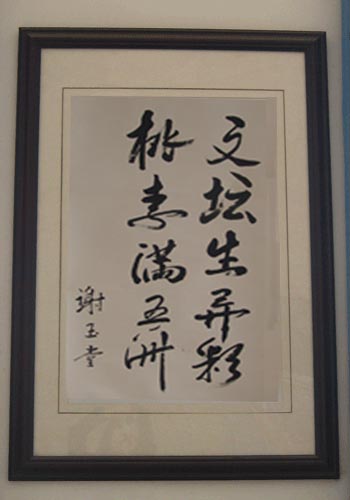 文坛生异彩
桃李满五洲
谢玉堂